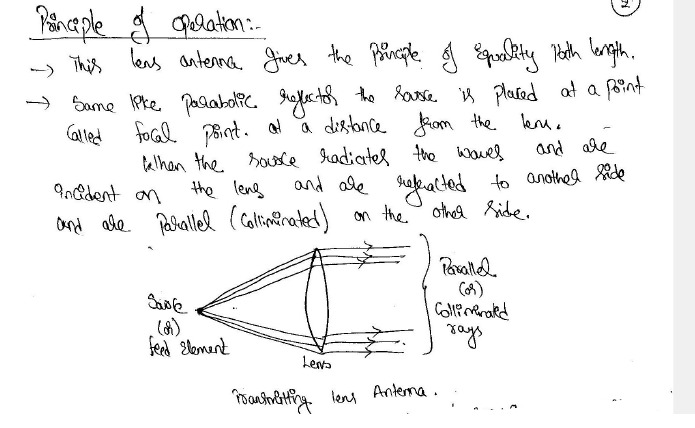 2
Principle of operation:-
→ This lens antenna gives the Principle of Equality Path length.
→ Same like Parabolic reflector the source is placed at a point
Called focal point. at a distance from the lens.
When the source radiates the waves and are
incident on the lens and are refracted to another side
and are Parallel (Colliminated) on the other side.
Source
(or)
feed element
Lens
Parallel
(or)
Colliminated
rays
Transmitting lens Antenna.